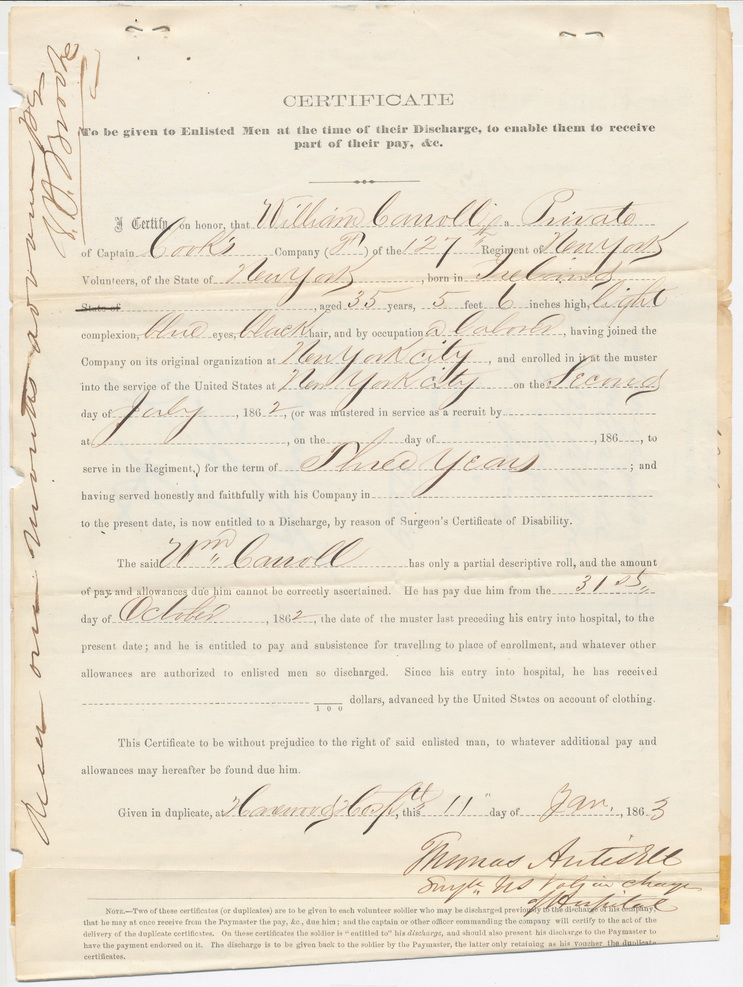 CERTIFICATE
To be given to Enlisted Men at the time of their Discharge, to enable them to receive
part of their pay, &c.
I Certify, on honor, that William Carroll a Private
of Captain Cook's Company ( ) of the 127th Regiment of New York
Volunteers, of the State of New York, born in Ireland
State of, aged 35 years, 5 feet 6 inches high, light
complexion, blue eyes, black hair, and by occupation a laborer, having joined the
Company on its original organization at New York city, and enrolled in it at the muster
into the service of the United States at New York city on the Second
day of July, 1862, (or was mustered in service as a recruit by
at, on the day of, 186, to
serve in the Regiment,) for the term of Three Years; and
having served honestly and faithfully with his Company in
to the present date, is now entitled to a Discharge, by reason of Surgeon's Certificate of Disability.
The said Wm Carroll has only a partial descriptive roll, and the amount
of pay and allowances due him cannot be correctly ascertained. He has pay due him from the 31st
day of October, 1862, the date of the muster last preceding his entry into hospital, to the
present date; and he is entitled to pay and subsistence for travelling to place of enrollment, and whatever other
allowances are authorized to enlisted men so discharged. Since his entry into hospital, he has received
100 dollars, advanced by the United States on account of clothing.
This Certificate to be without prejudice to the right of said enlisted man, to whatever additional pay and
allowances may hereafter be found due him.
Given in duplicate, at Harewood Hospital, this 11" day of Jan., 1863
Thomas Antisell
Surgn US Vols in charge
of Hospital
NOTE.—Two of these certificates (or duplicates) are to be given to each volunteer soldier who may be discharged previously to the discharge of his company,
that he may at once receive from the Paymaster the pay, &c., due him; and the captain or other officer commanding the company will certify to the act of the
delivery of the duplicate certificates. On these certificates the soldier is "entitled to" his discharge, and should also present his discharge to the Paymaster to
have the payment endorsed on it. The discharge is to be given back to the soldier by the Paymaster, the latter only retaining as his voucher the duplicate
certificates.
one months
Brooke